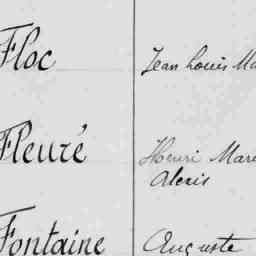 Floc Jean Louis Ma
Fleuré Henri Mari
Alexis
Fontaine Auguste